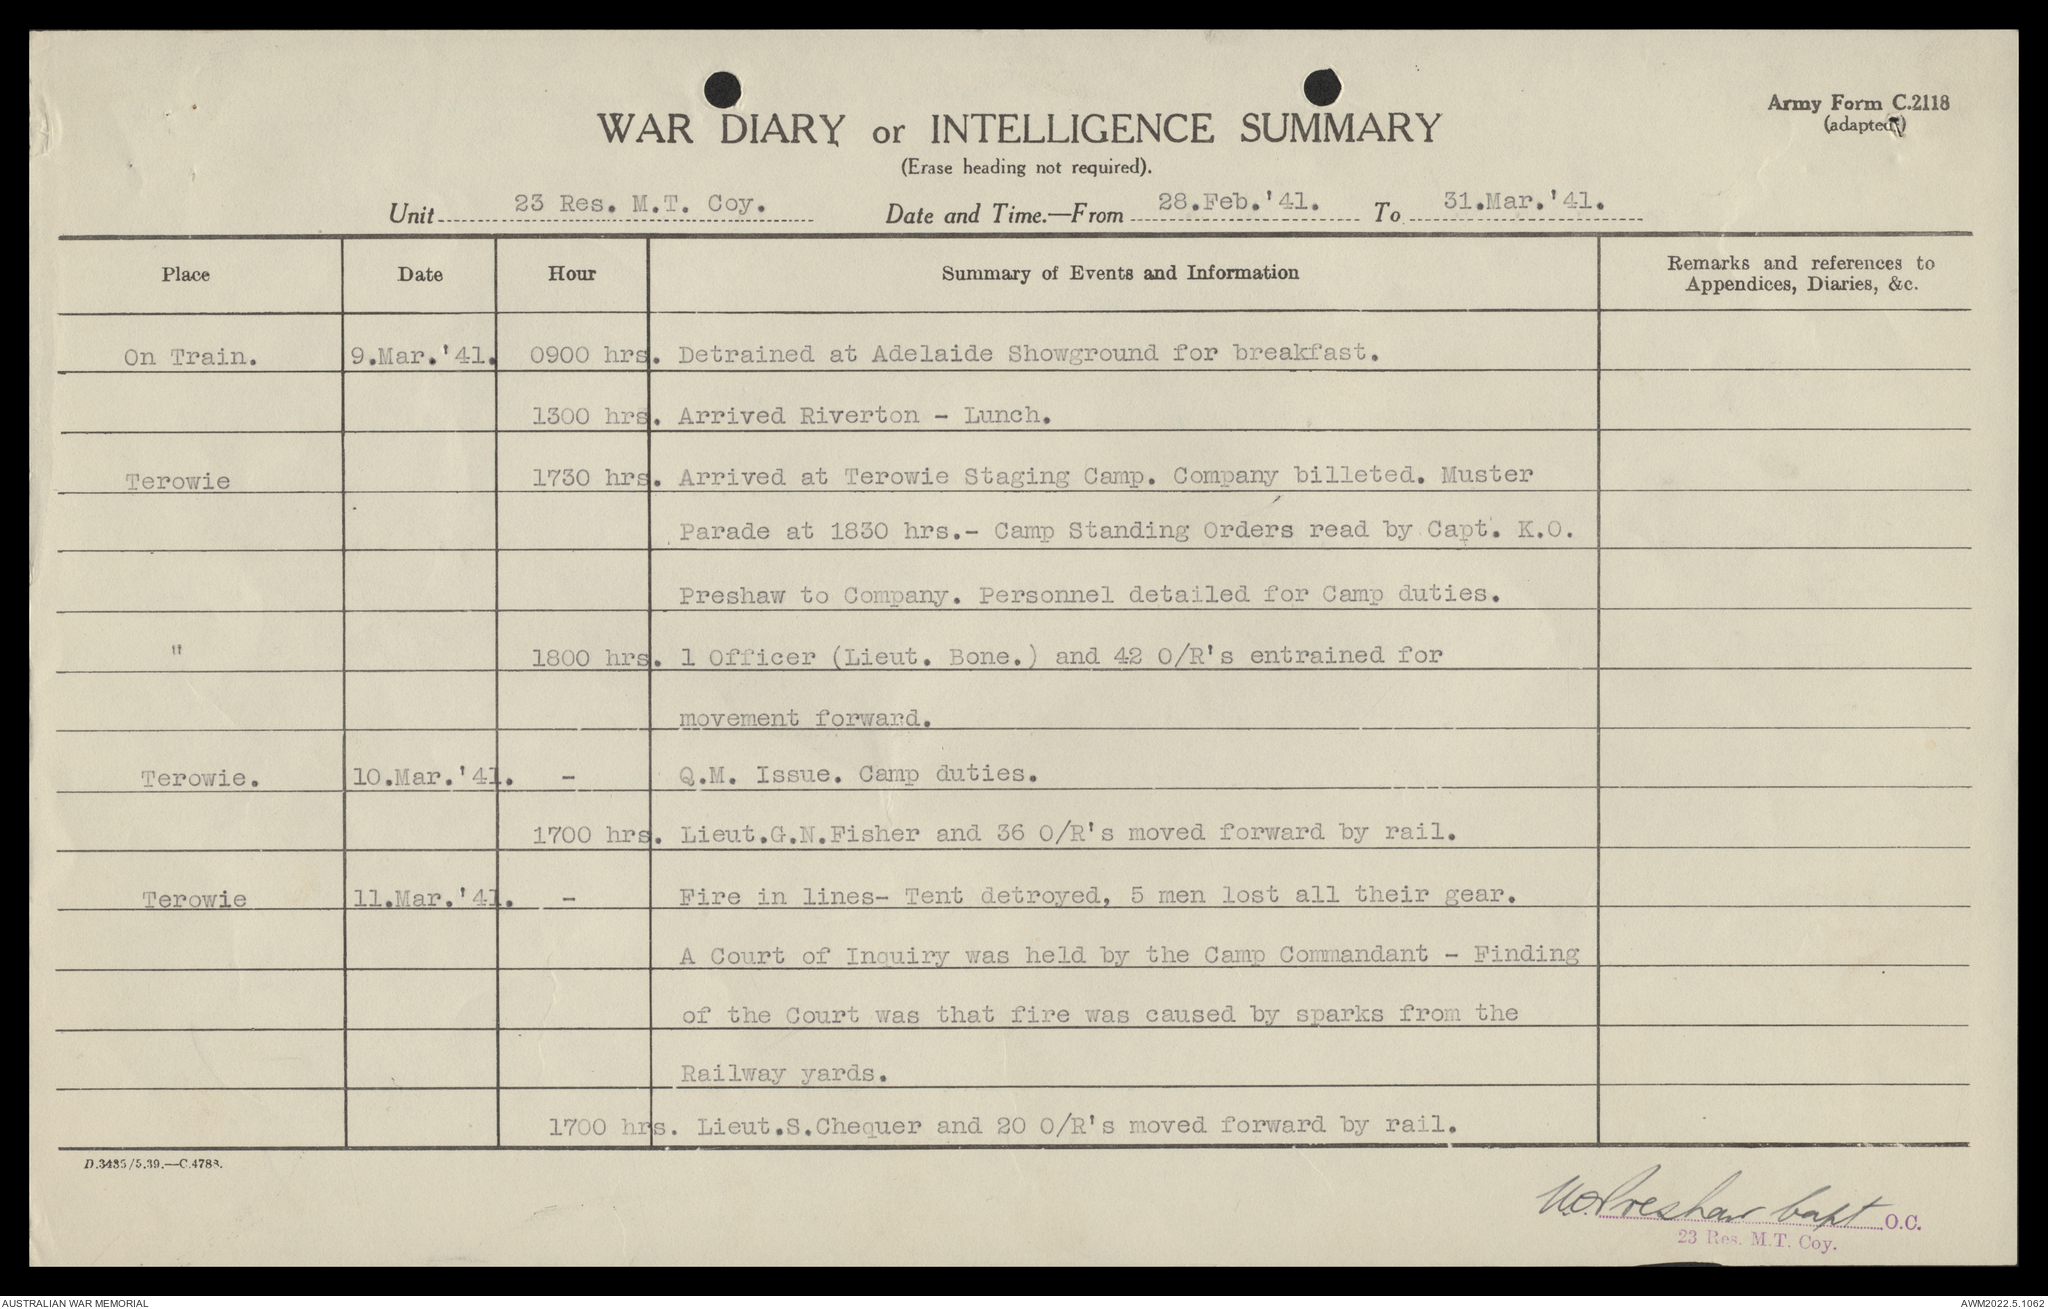 Army Form C.2118
(adapted)
WAR DIARY or INTELLIGENCE SUMMARY
(Erase heading not required).
Unit 23 Res. M.T. Coy. Date and Time.—From 28.Feb.'41. To 31.Mar.'41.
Place Date Hour Summary of Events and Information Remarks and references to
Appendices, Diaries, &c.
On Train. 9.Mar.'41. 0900 hrs. Detrained at Adelaide Showground for breakfast.
1300 hrs. Arrived Riverton - Lunch.
Terowie 1730 hrs. Arrived at Terowie Staging Camp. Company billeted. Muster
Parade at 1830 hrs.- Camp Standing Orders read by Capt. K.O.
Preshaw to Company. Personnel detailed for Camp duties.
" 1800 hrs. 1 Officer (Lieut. Bone.) and 42 O/R's entrained for
movement forward.
Terowie. 10.Mar.'41. - Q.M. Issue. Camp duties.
1700 hrs. Lieut.G.N.Fisher and 36 O/R's moved forward by rail.
Terowie 11.Mar.'41. - Fire in lines- Tent detroyed, 5 men lost all their gear.
A Court of Inquiry was held by the Camp Commandant - Finding
of the Court was that fire was caused by sparks from the
Railway yards.
1700 hrs. Lieut.S.Chequer and 20 O/R's moved forward by rail.
D.3485/5.39.—C.4783.
K.O.Preshaw Capt O.C.
23 Res. M.T. Coy.
AUSTRALIAN WAR MEMORIAL AWM2022.5.1062